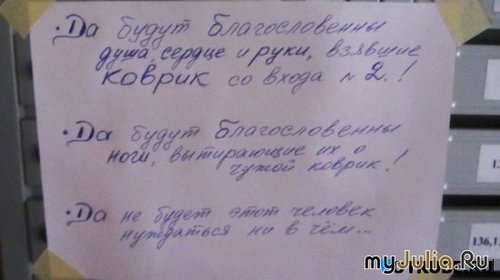 • Да будут благословенны
душа, сердце и руки, взявшие
коврик со входа № 2.!
• Да будут благословенны
ноги, вытирающие их о
чужой коврик!
• Да не будет этот человек
нуждаться ни в чём...
136,1
myJulia.Ru